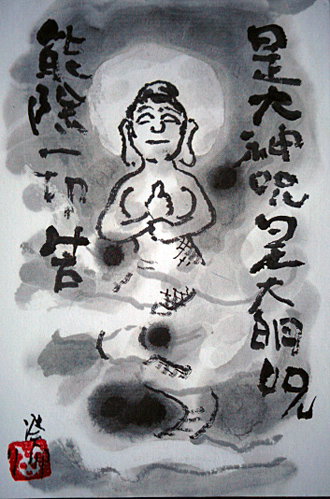 是大神呪是大明呪
能除一切苦